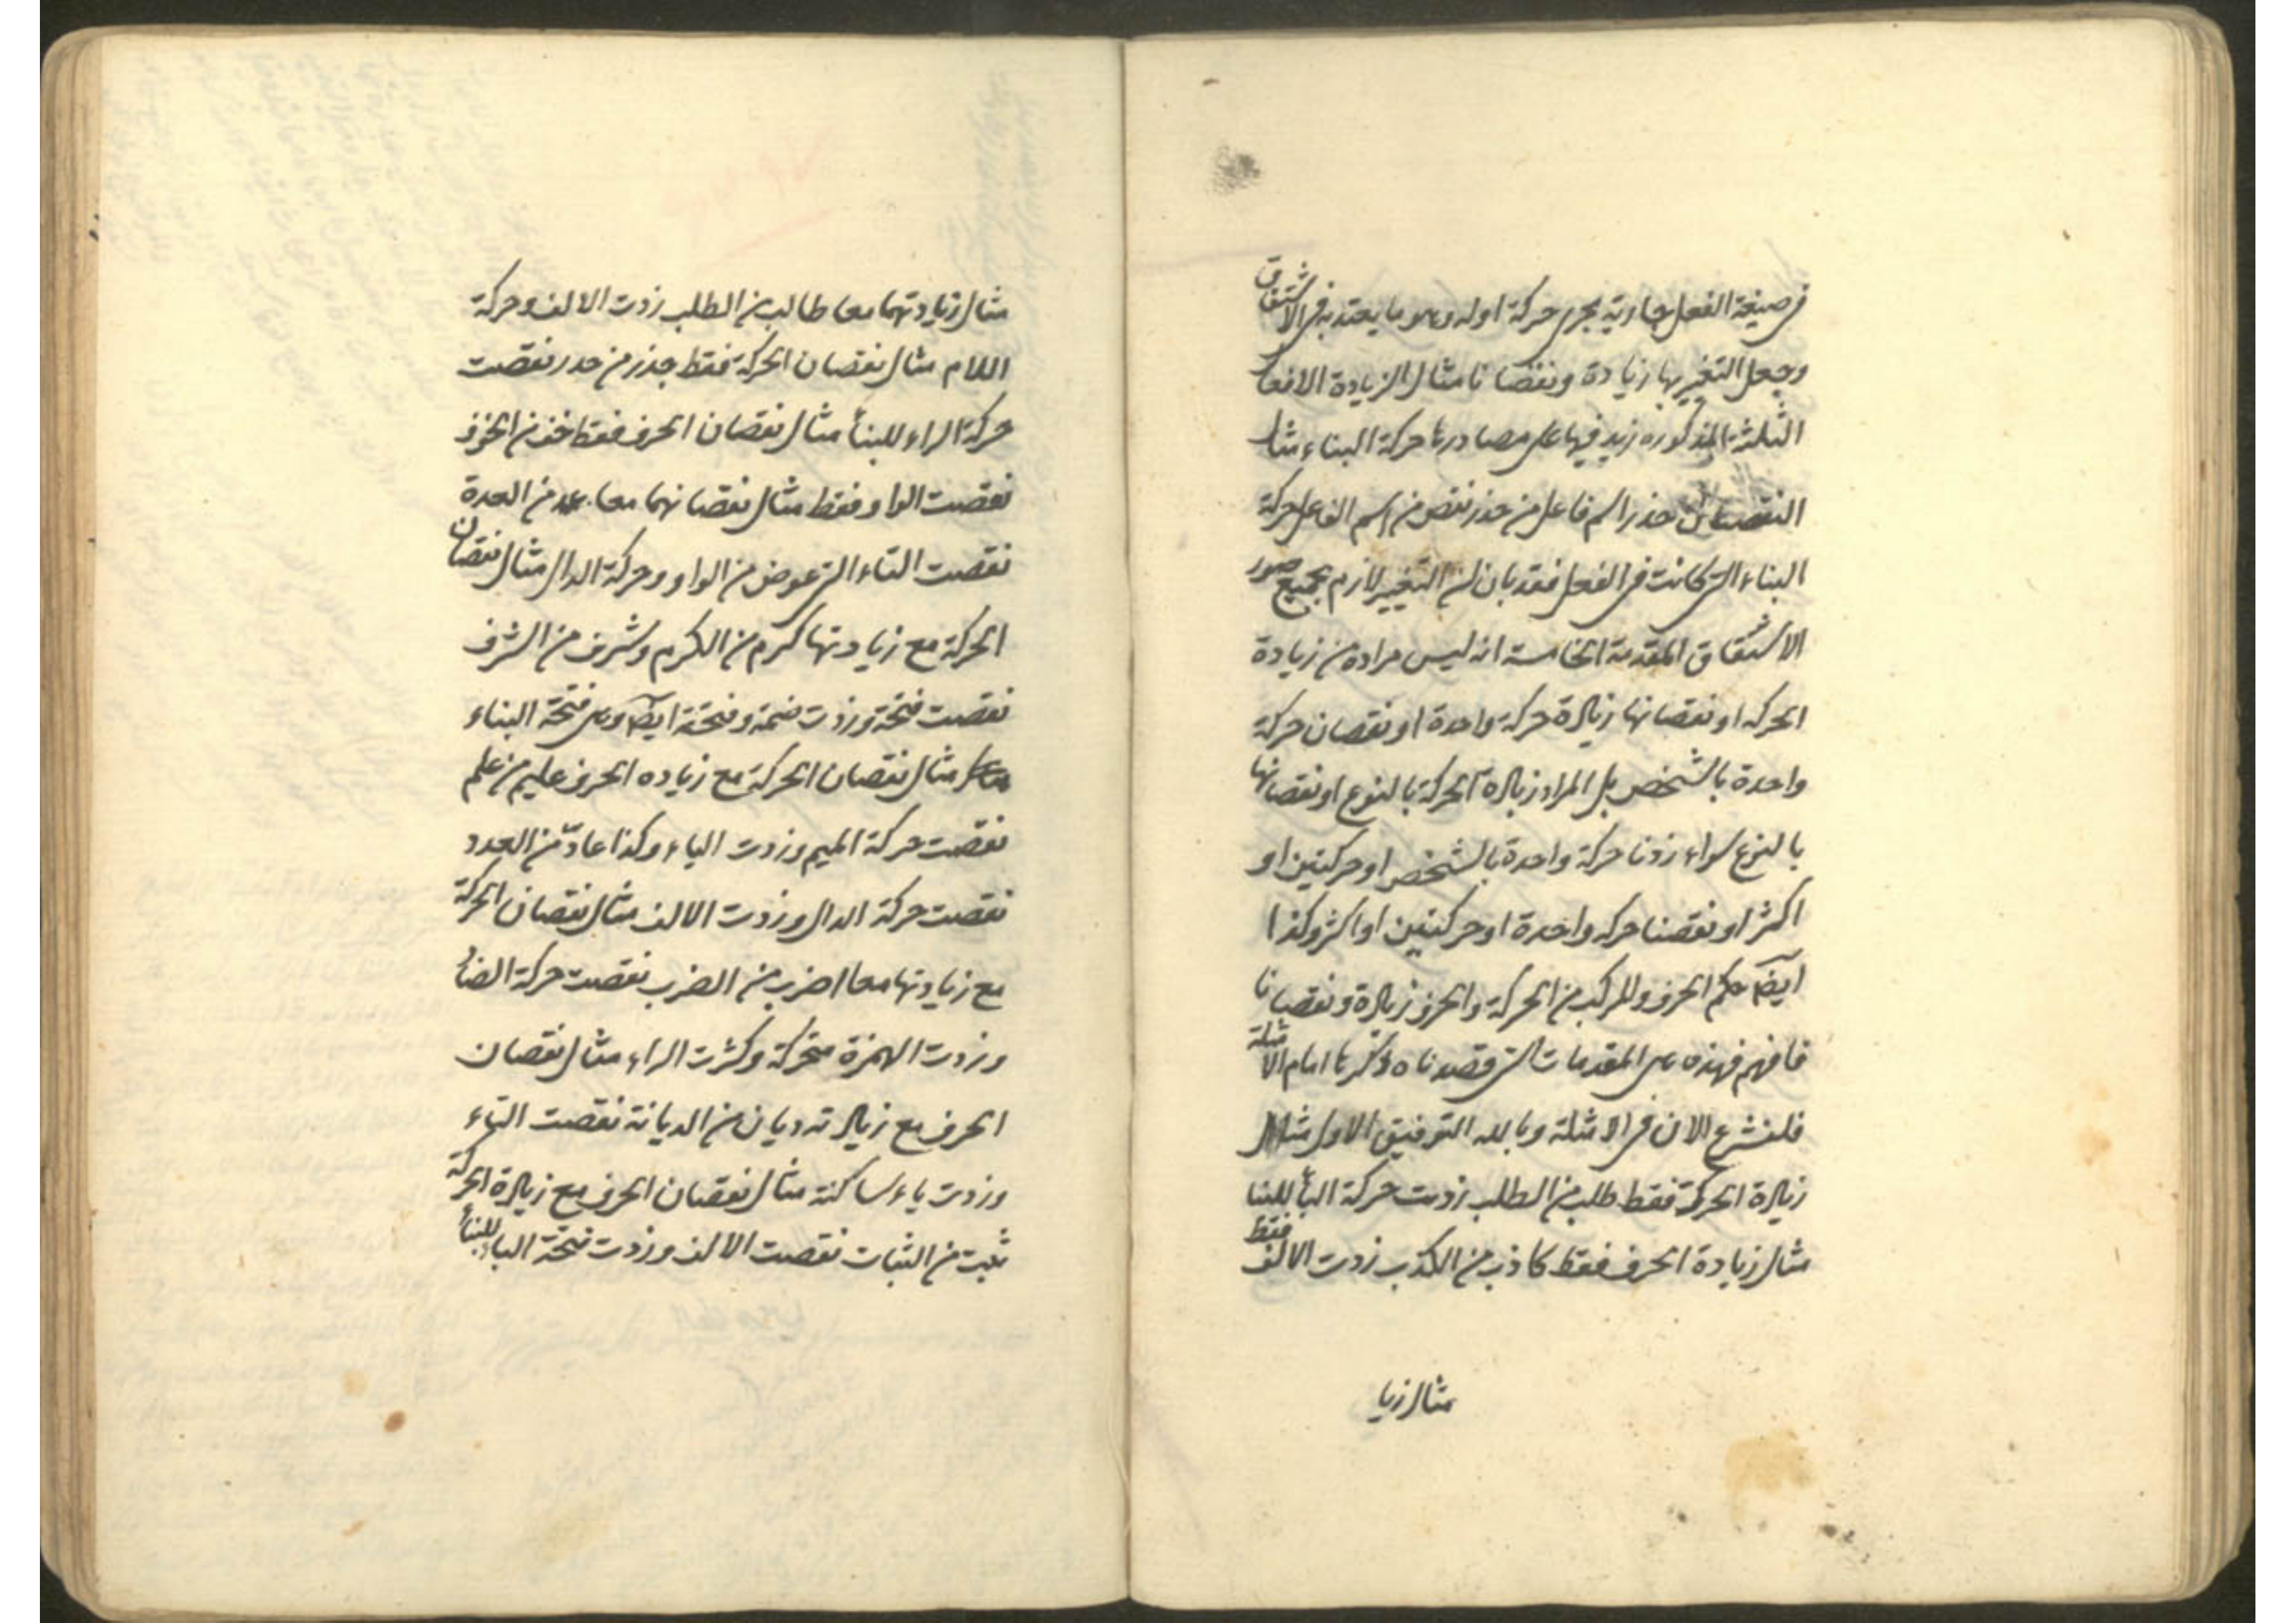 في صيغة الفعل جاوية مجرى حركة اوله وهو ما يعتد به في الاشتقاق
وجعل التغير بها زيادة ونقصانا مثال الزيادة الافعا
الثلثة المذكوره زيد فيها على مصادرها حركة البناء مثا
النقصان حذر اسم فاعل من حذر نقص من اسم الفاعل حركة
البناء التي كانت في الفعل فقد بان ان التغيير لازم بجميع صور
الاشتقاق المقدمة الخامسة انه ليس مراده من زيادة
الحركه او نقصانها زيادة حركة واحدة او نقصان حركة
واحدة بالشخص بل المراد زيادة الحركة بالنوع او نقصانها
بالنوع سواء زدنا حركة واحدة بالشخص او حركتين او
اكثر او نقصنا حركه واحدة او حركتين او اكثر وكذا
ايضا حكم الحرف والمركب من الحركة والحرف زيادة ونقصانا
فافهم فهذه هي المقدمات التي قصدناه ذكرها امام الامثلة
فلنشرع الان في الامثلة وبالله التوفيق الاول مثال
زيادة الحركة فقط طلب من الطلب زدت حركة البأ للبنا
مثال زيادة الحرف فقط كاذب من الكذب زدت الالف فقط
مثال زيا
مثال زيادتهما معا طالب من الطلب زدت الالف وحركة
اللام مثال نقصان الحركة فقط حذر من حدر نقصت
حركة الراء للبنأ مثال نقصان الحرف فقط خف من الخوف
نقصت الواو فقط مثال نقصانهما معا عد من العدة
نقصت التاء التي عوض من الواو وحركة الدال مثال نقصان
الحركة مع زيادتها كرم من الكرم وشرف من الشرف
نقصت فتحة وزدت ضمة وفتحة ايضا وهي فتحة البناء
مثال نقصان الحركة مع زياده الحرف عليم من علم
نقصت حركة الميم وزدت الياء وكذا عادّ من العدد
نقصت حركة الدال وزدت الالف مثال نقصان الحركة
مع زيادتها معا اضرب من الضرب نقصت حركة الضا
وزدت الهمزة متحركة وكثرت الراء مثال نقصان
الحرف مع زيادته ديان من الديانة نقصت التاء
وزدت ياء ساكنة مثال نقصان الحرف مع زيادة الحركة
ثبت من الثبات نقصت الالف وزدت فتحة الباء للبنأ